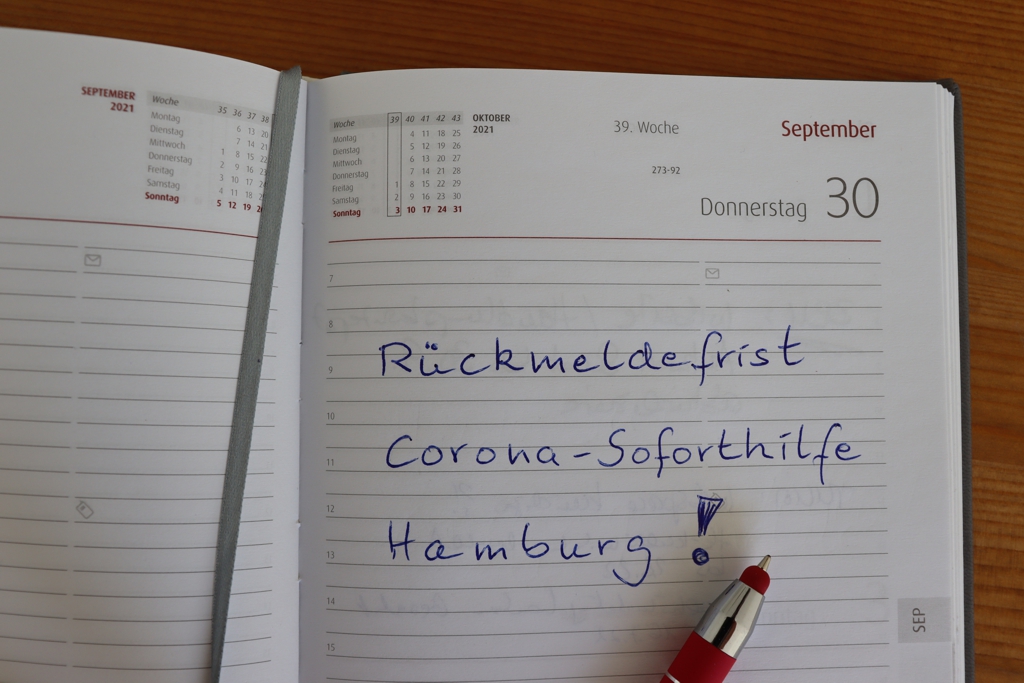 SEPTEMBER
2021
Woche 35 36 37 38
Montag 6 13 20
Dienstag 7 14 21
Mittwoch 1 8 15 22
Donnerstag 2 9 16 23
Freitag 3 10 17
Samstag 4 11 18
Sonntag 5 12 19
Woche 39 40 41 42 43
Montag 4 11 18 25
Dienstag 5 12 19 26
Mittwoch 6 13 20 27
Donnerstag 7 14 21 28
Freitag 1 8 15 22 29
Samstag 2 9 16 23 30
Sonntag 3 10 17 24 31
OKTOBER
2021
39. Woche
September
273-92
Donnerstag 30
7
8
9 Rückmeldefrist
10
11 Corona-Soforthilfe
12
13 Hamburg!
14
15
SEP